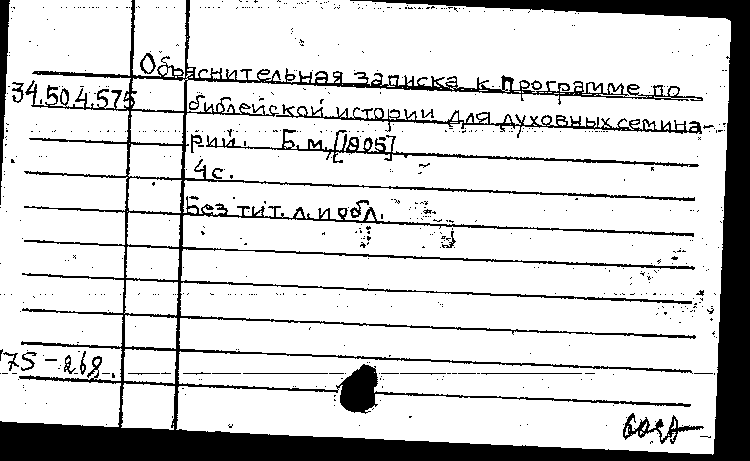 Объяснительная записка к программе по
34.50.4.575 библейской истории для духовных семина-
рий. Б.м., [1905].
4 с.
Без тит. л. и обл.
75-268.